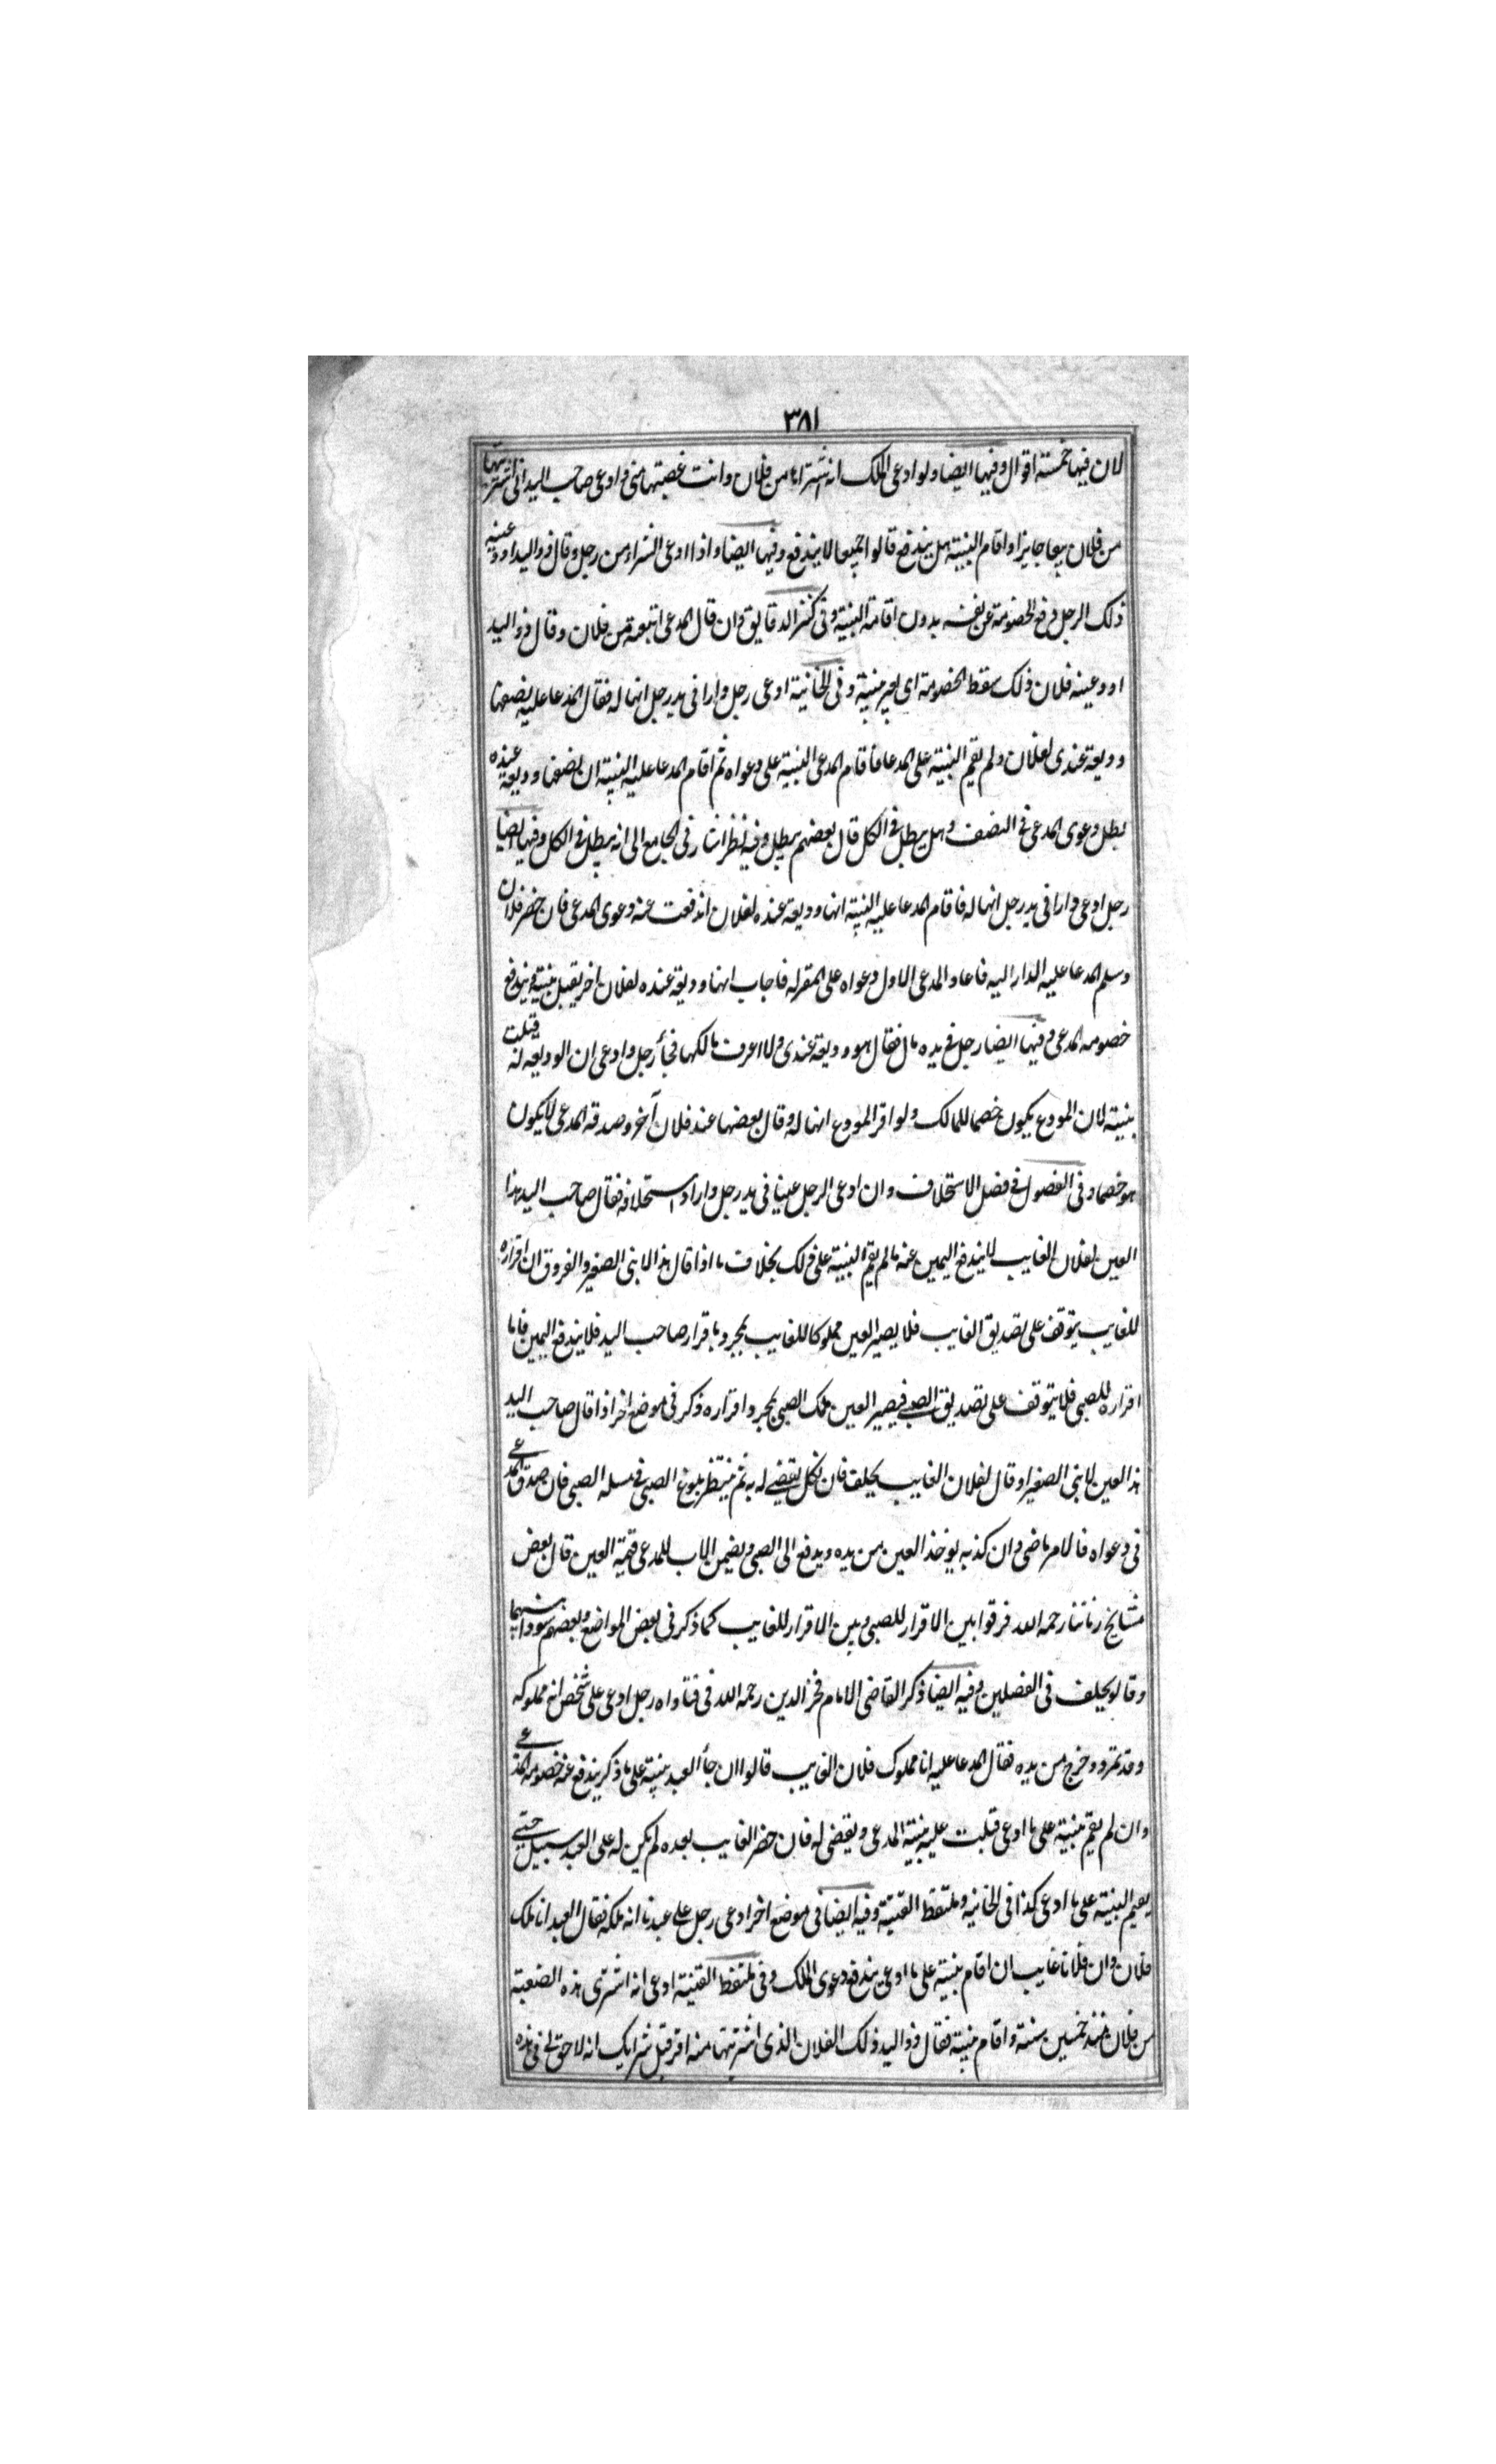 ٣٨١
لان فيها خمسة اقوال وفيها ايضا ولو ادعى الملك انه اشتراها من فلان وانت غصبتها منى وادعى صاحب اليد انى اشتريتها
من فلان بيعا جايزا واقام البينة هل يندفع قالوا جميعا لا يندفع وفيها ايضا واذا ادعى الشراء من رجل وقال ذو اليد اودعنيه
ذلك الرجل دفع الخصومة عن نفسه بدون اقامة البينة وفى كنز الدقايق وان قال المدعى ابتعته من فلان وقال ذو اليد
اودعينه فلان ذلك سقط الخصومة اى بغير بينة وفى الخانية ادعى رجل دارا فى يد رجل انها له فقال المدعا عليه نصفها
وديعة عندى لفلان ولم يقم البينة على المدعا فاقام المدعى البينة على دعواه ثم اقام المدعا عليه البينة ان نصفها وديعة عنده
بطل دعوى المدعى فى النصف وهل يبطل فى الكل قال بعضهم يبطل وفيه نظر اشار فى الجامع الى انه يبطل فى الكل وفيها ايضا
رجل ادعى دارا فى يد رجل انها له فاقام المدعا عليه البينة انها وديعة عنده لفلان اندفعت عنه دعوى المدعى فان حضر فلان
وسلم المدعا عليه الدار اليه فاعاد المدعى الاول دعواه على المقر له فاجاب انها وديعة عنده لفلان اخر يقبل بينة ويندفع
خصومه المدعى وفيها ايضا رجل فى يده مال فقال هو وديعة عندى ولا اعرف مالكها فجأ رجل وادعى ان الوديعه له قبلت
بينته لان المودع يكون خصما للمالك ولو اقر المودع انها له وقال بعضها عند فلان آخر وصدقه المدعى لا يكون
هو خصما وفى الفصول فى فصل الاستحلاف وان ادعى الرجل عينا فى يد رجل واراد استحلافه فقال صاحب اليد هذا
العين لفلان الغايب لا يندفع اليمين عنه ما لم يقم البينة على ذلك بخلاف ما اذا قال هذا لابنى الصغير والفروق ان اقراره
للغايب يتوقف على تصديق الغايب فلا يصير العين مملوكا للغايب بمجرد باقرار صاحب اليد فلا يندفع اليمين فاما
اقراره للصبى فلا يتوقف على تصديق الصبى فيصير العين ملك الصبى بمجرد اقراره ذكر فى موضع اخر اذا قال صاحب اليد
هذا العين لابنى الصغير او قال لفلان الغايب يحلف فان نكل يقضى له به ثم ينتظر بلوغ الصبى فى مسله الصبى فان صدق المدعى
فى دعواه فالامر ماضى وان كذبه يوخذ العين من يده ويدفع الى الصبى ويضمن الاب للمدعى قيمة العين قال بعض
مشايخ زماننا رحمه الله فرقوا بين الاقرار للصبى وبين الاقرار للغايب كما ذكر فى بعض المواضع وبعضهم سووا بينهما
وقالو يحلف فى الفصلين وفيه ايضا ذكر القاضى الامام فخر الدين رحمه الله فى فتاواه رجل ادعى على شخص انه مملوكه
وقد تمرد وخرج من يده فقال المدعا عليه انا مملوك فلان الغايب قالوا ان جأ العبد بينة على ما ذكر يندفع عنه خصومه المدعى
وان لم يقم بينة على ما ادعى قبلت عليه بينة المدعى ويقضى له فان حضر الغايب بعده لم يكن له على العبد سبيل حتى
يقيم البينة على ما ادعى كذا فى الخانيه وملتقط القنية وفيه ايضا فى موضع اخر ادعى رجل على عبد ما انه ملكه فقال العبد انا ملك
فلان وان فلانا غايب ان اقام بينة على ما ادعى يندفع دعوى الملك وفى ملتقط القنية ادعى انه اشترى هذه الضيعة
من فلان منذ خمسين سنة واقام بينة فقال ذو اليد ذلك الفلان الذى اشتريتها منه اقر قبل شرايك انه لا حق لى فى هذه